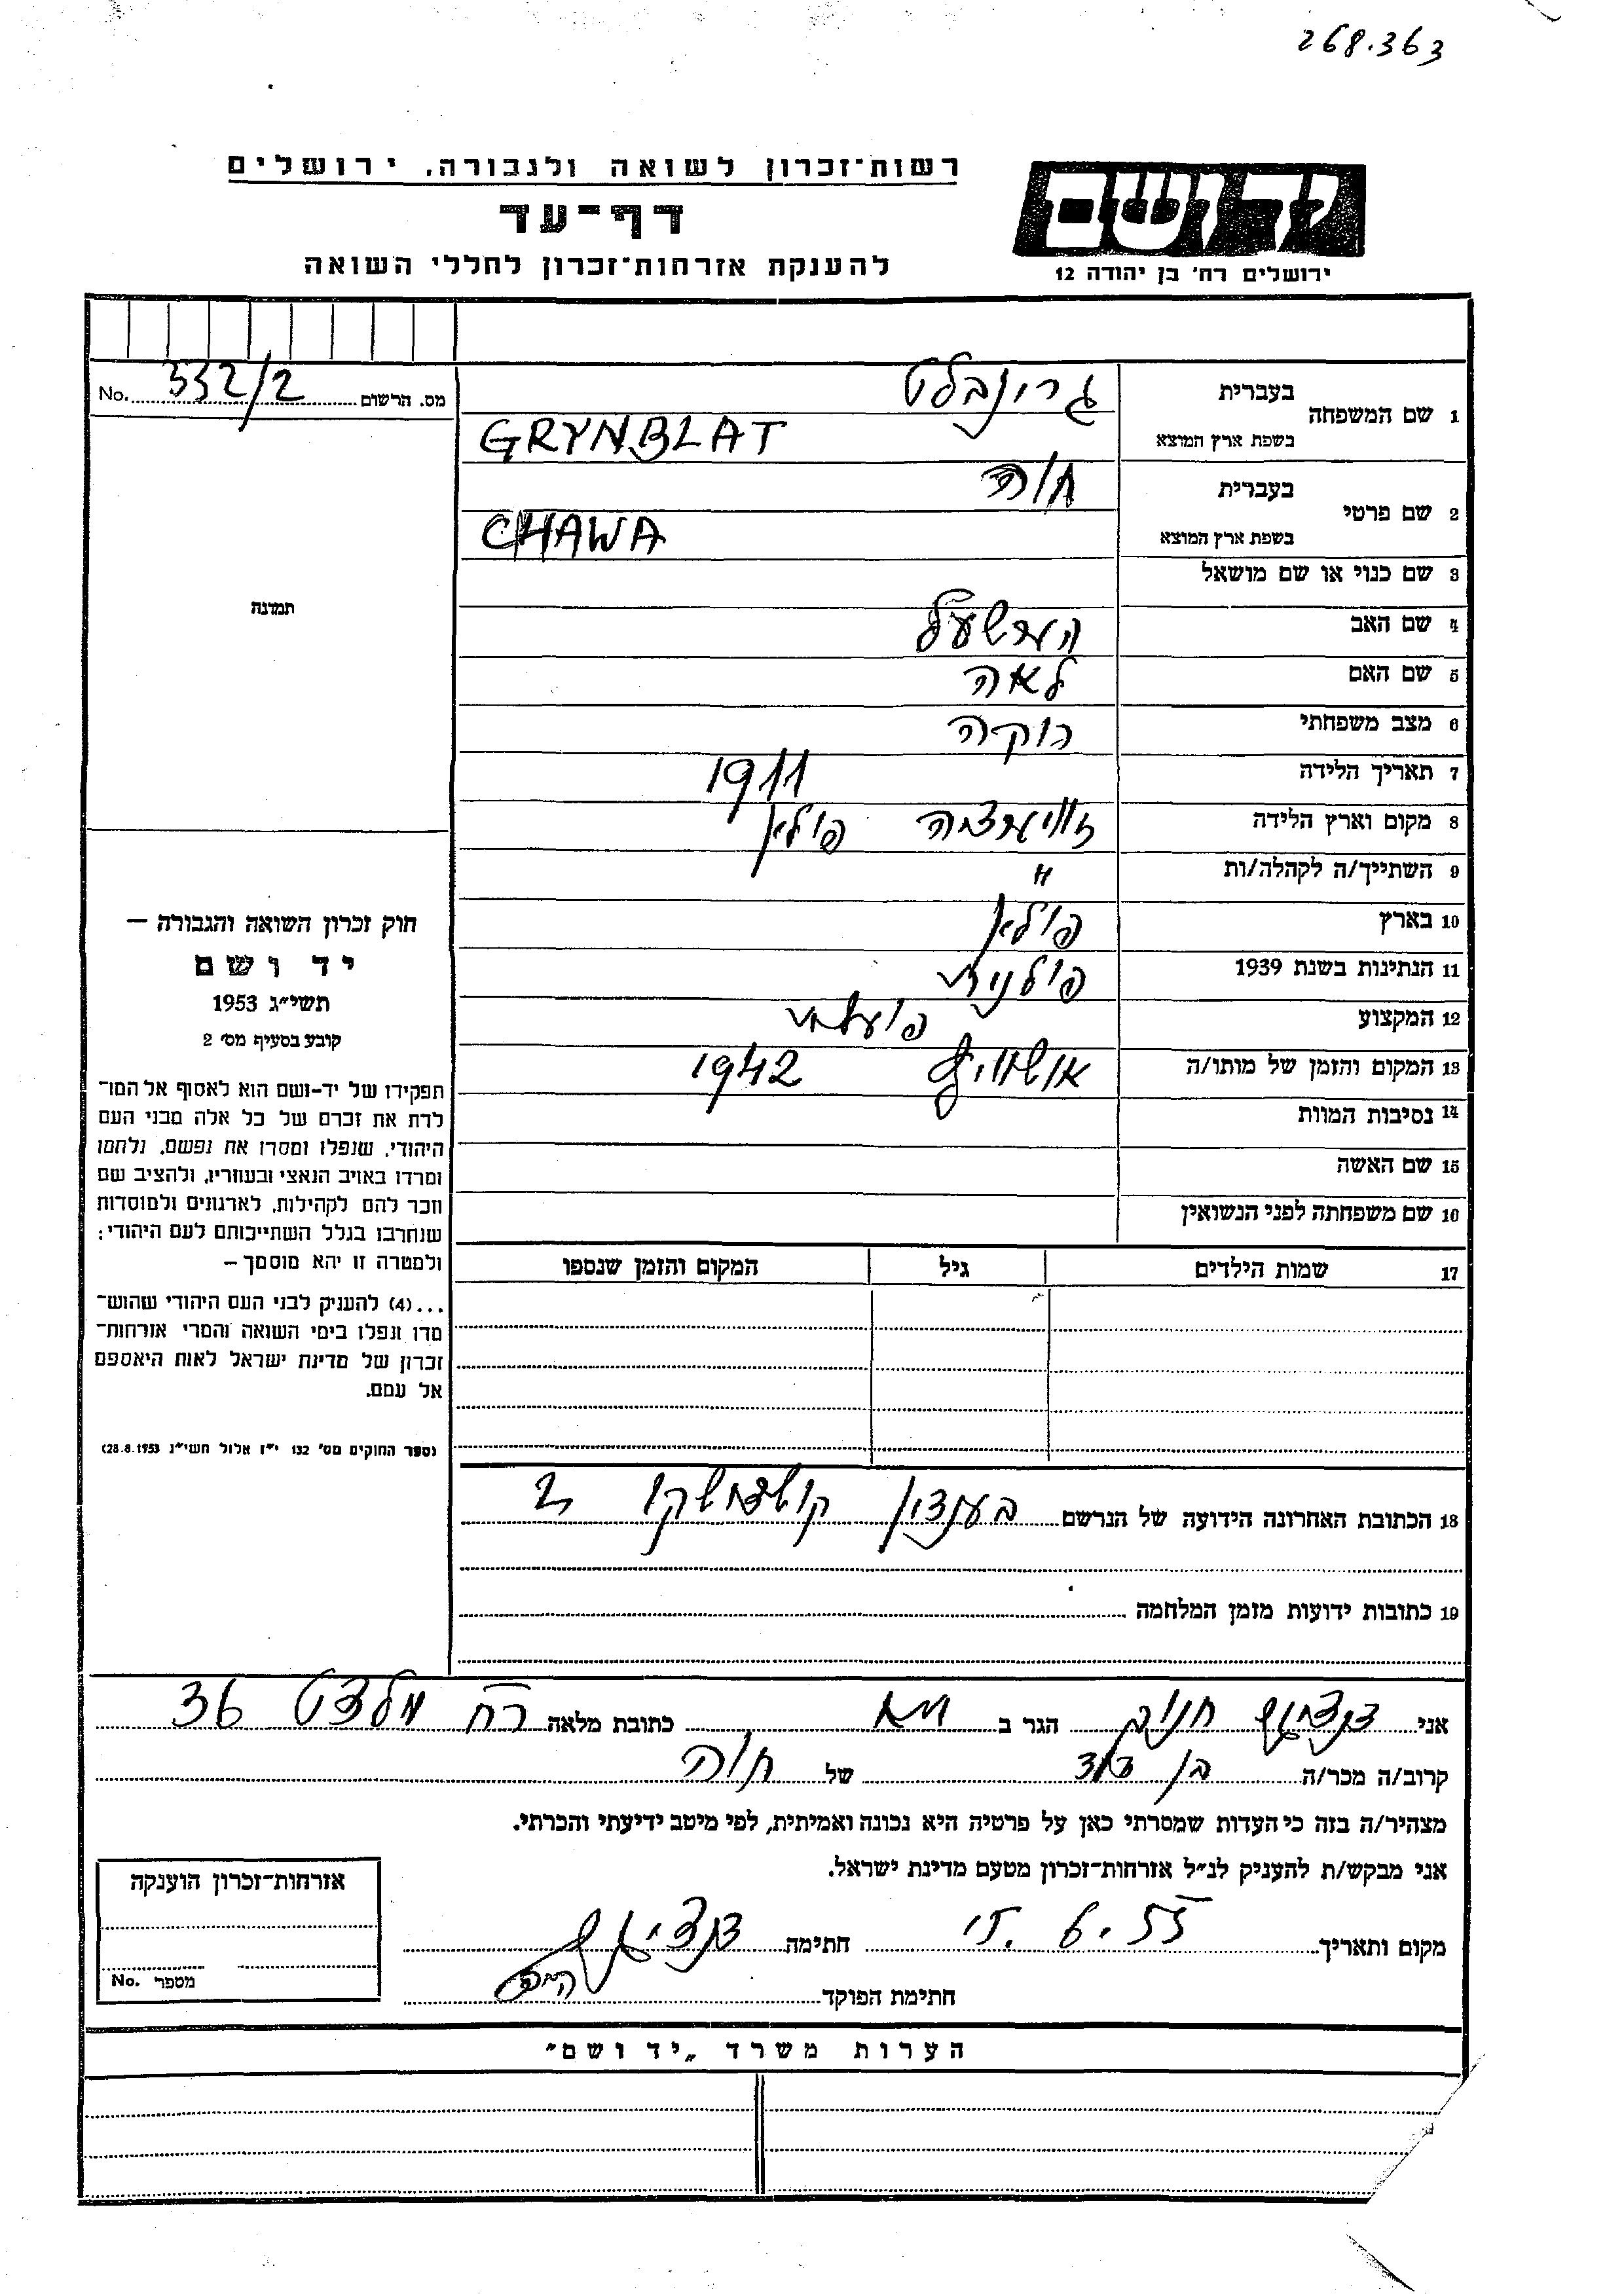 268.363
יד ושם
ירושלים רח' בן יהודה 12
רשות־זכרון לשואה ולגבורה, ירושלים
דף־עד
להענקת אזרחות־זכרון לחללי השואה
מס. הרשום 332/2 No.
1 שם המשפחה בעברית גרינבלט
בשפת ארץ המוצא GRYNBLAT
2 שם פרטי בעברית חוה
בשפת ארץ המוצא CHAWA
3 שם כנוי או שם מושאל
4 שם האב
5 שם האם לאה
6 מצב משפחתי רוקה
7 תאריך הלידה 1911
8 מקום וארץ הלידה פולין
9 השתייך/ה לקהלה/ות "
10 בארץ פולין
11 הנתינות בשנת 1939 פולנית
12 המקצוע פועלת
13 המקום והזמן של מותו/ה אושוויץ 1942
14 נסיבות המוות
15 שם האשה
16 שם משפחתה לפני הנשואין
17 שמות הילדים גיל המקום והזמן שנספו
18 הכתובת האחרונה הידועה של הנרשם בענדין 2
19 כתובות ידועות מזמן המלחמה
תמונה
חוק זכרון השואה והגבורה —
יד ושם
תשי״ג 1953
קובע בסעיף מס׳ 2
תפקידו של יד-ושם הוא לאסוף אל המו־
לדת את זכרם של כל אלה מבני העם
היהודי, שנפלו ומסרו את נפשם, נלחמו
ומרדו באויב הנאצי ובעוזריו, ולהציב שם
וזכר להם לקהילות, לארגונים ולמוסדות
שנחרבו בגלל השתייכותם לעם היהודי;
ולמטרה זו יהא מוסמך —
...(4) להעניק לבני העם היהודי שהוש־
מדו ונפלו בימי השואה והמרי אזרחות־
זכרון של מדינת ישראל לאות היאספם
אל עמם.
(ספר החוקים מס׳ 132 י״ז אלול תשי״ג 28.8.1953)
אני חנוך הגר ב ת״א כתובת מלאה רח 36
קרוב/ה מכר/ה בן דוד של חוה
מצהיר/ה בזה כי העדות שמסרתי כאן על פרטיה היא נכונה ואמיתית, לפי מיטב ידיעתי והכרתי.
אני מבקש/ת להעניק לנ״ל אזרחות־זכרון מטעם מדינת ישראל.
מקום ותאריך 15. 6. 55 חתימה
חתימת הפוקד
אזרחות־זכרון הוענקה
מספר No.
הערות משרד „יד ושם״